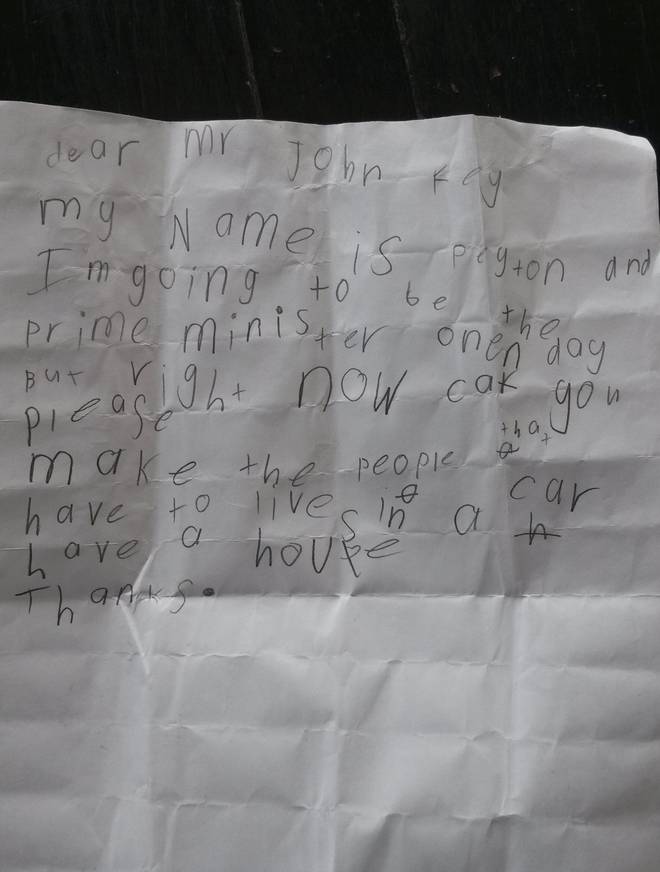 dear Mr John Key
my Name is peyton and
I'm going to be the
prime minister one day
But right now can you
please
make the people that
have to live in a car
have a house
Thanks.